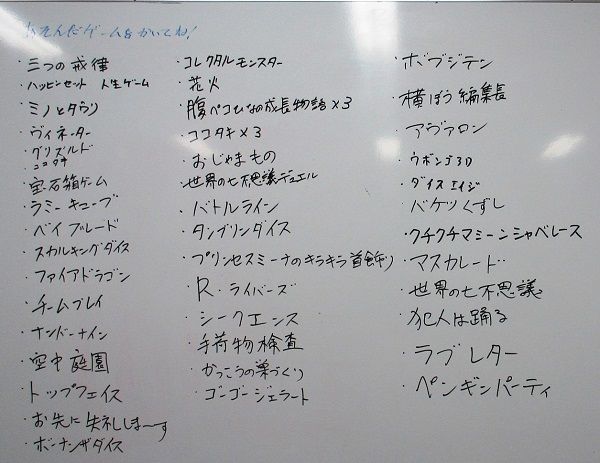 あそんだゲームをかいてね!
・三つの戒律
・ハッピーセット 人生ゲーム
・ミノとタウリ
・ヴィネーター
・グリズルド
・ココタキ
・宝石箱ゲーム
・ラミーキューブ
・ベイブレード
・スカルキングダイス
・ファイアドラゴン
・チームプレイ
・ナンドーナイン
・空中庭園
・トップフェイス
・お先に失礼しま～す
・ボーナンザダイス
・コレクタルモンスター
・花火
・腹ペコひなの成長物語×3
・ココタキ×3
・おじゃまもの
・世界の七不思議デュエル
・バトルライン
・タンブリンダイス
・プリンセスミーナのキラキラ首飾り
・R・ライバーズ
・シークエンス
・手荷物検査
・かっこうの巣づくり
・ゴーゴージェラート
・ボブジテン
・横ぼう編集長
・アヴァロン
・ウボンゴ3D
・ダイスエイジ
・バケツくずし
・クチクチマミーンシャベレース
・マスカレード
・世界の七不思議
・犯人は踊る
・ラブレター
・ペンギンパーティ